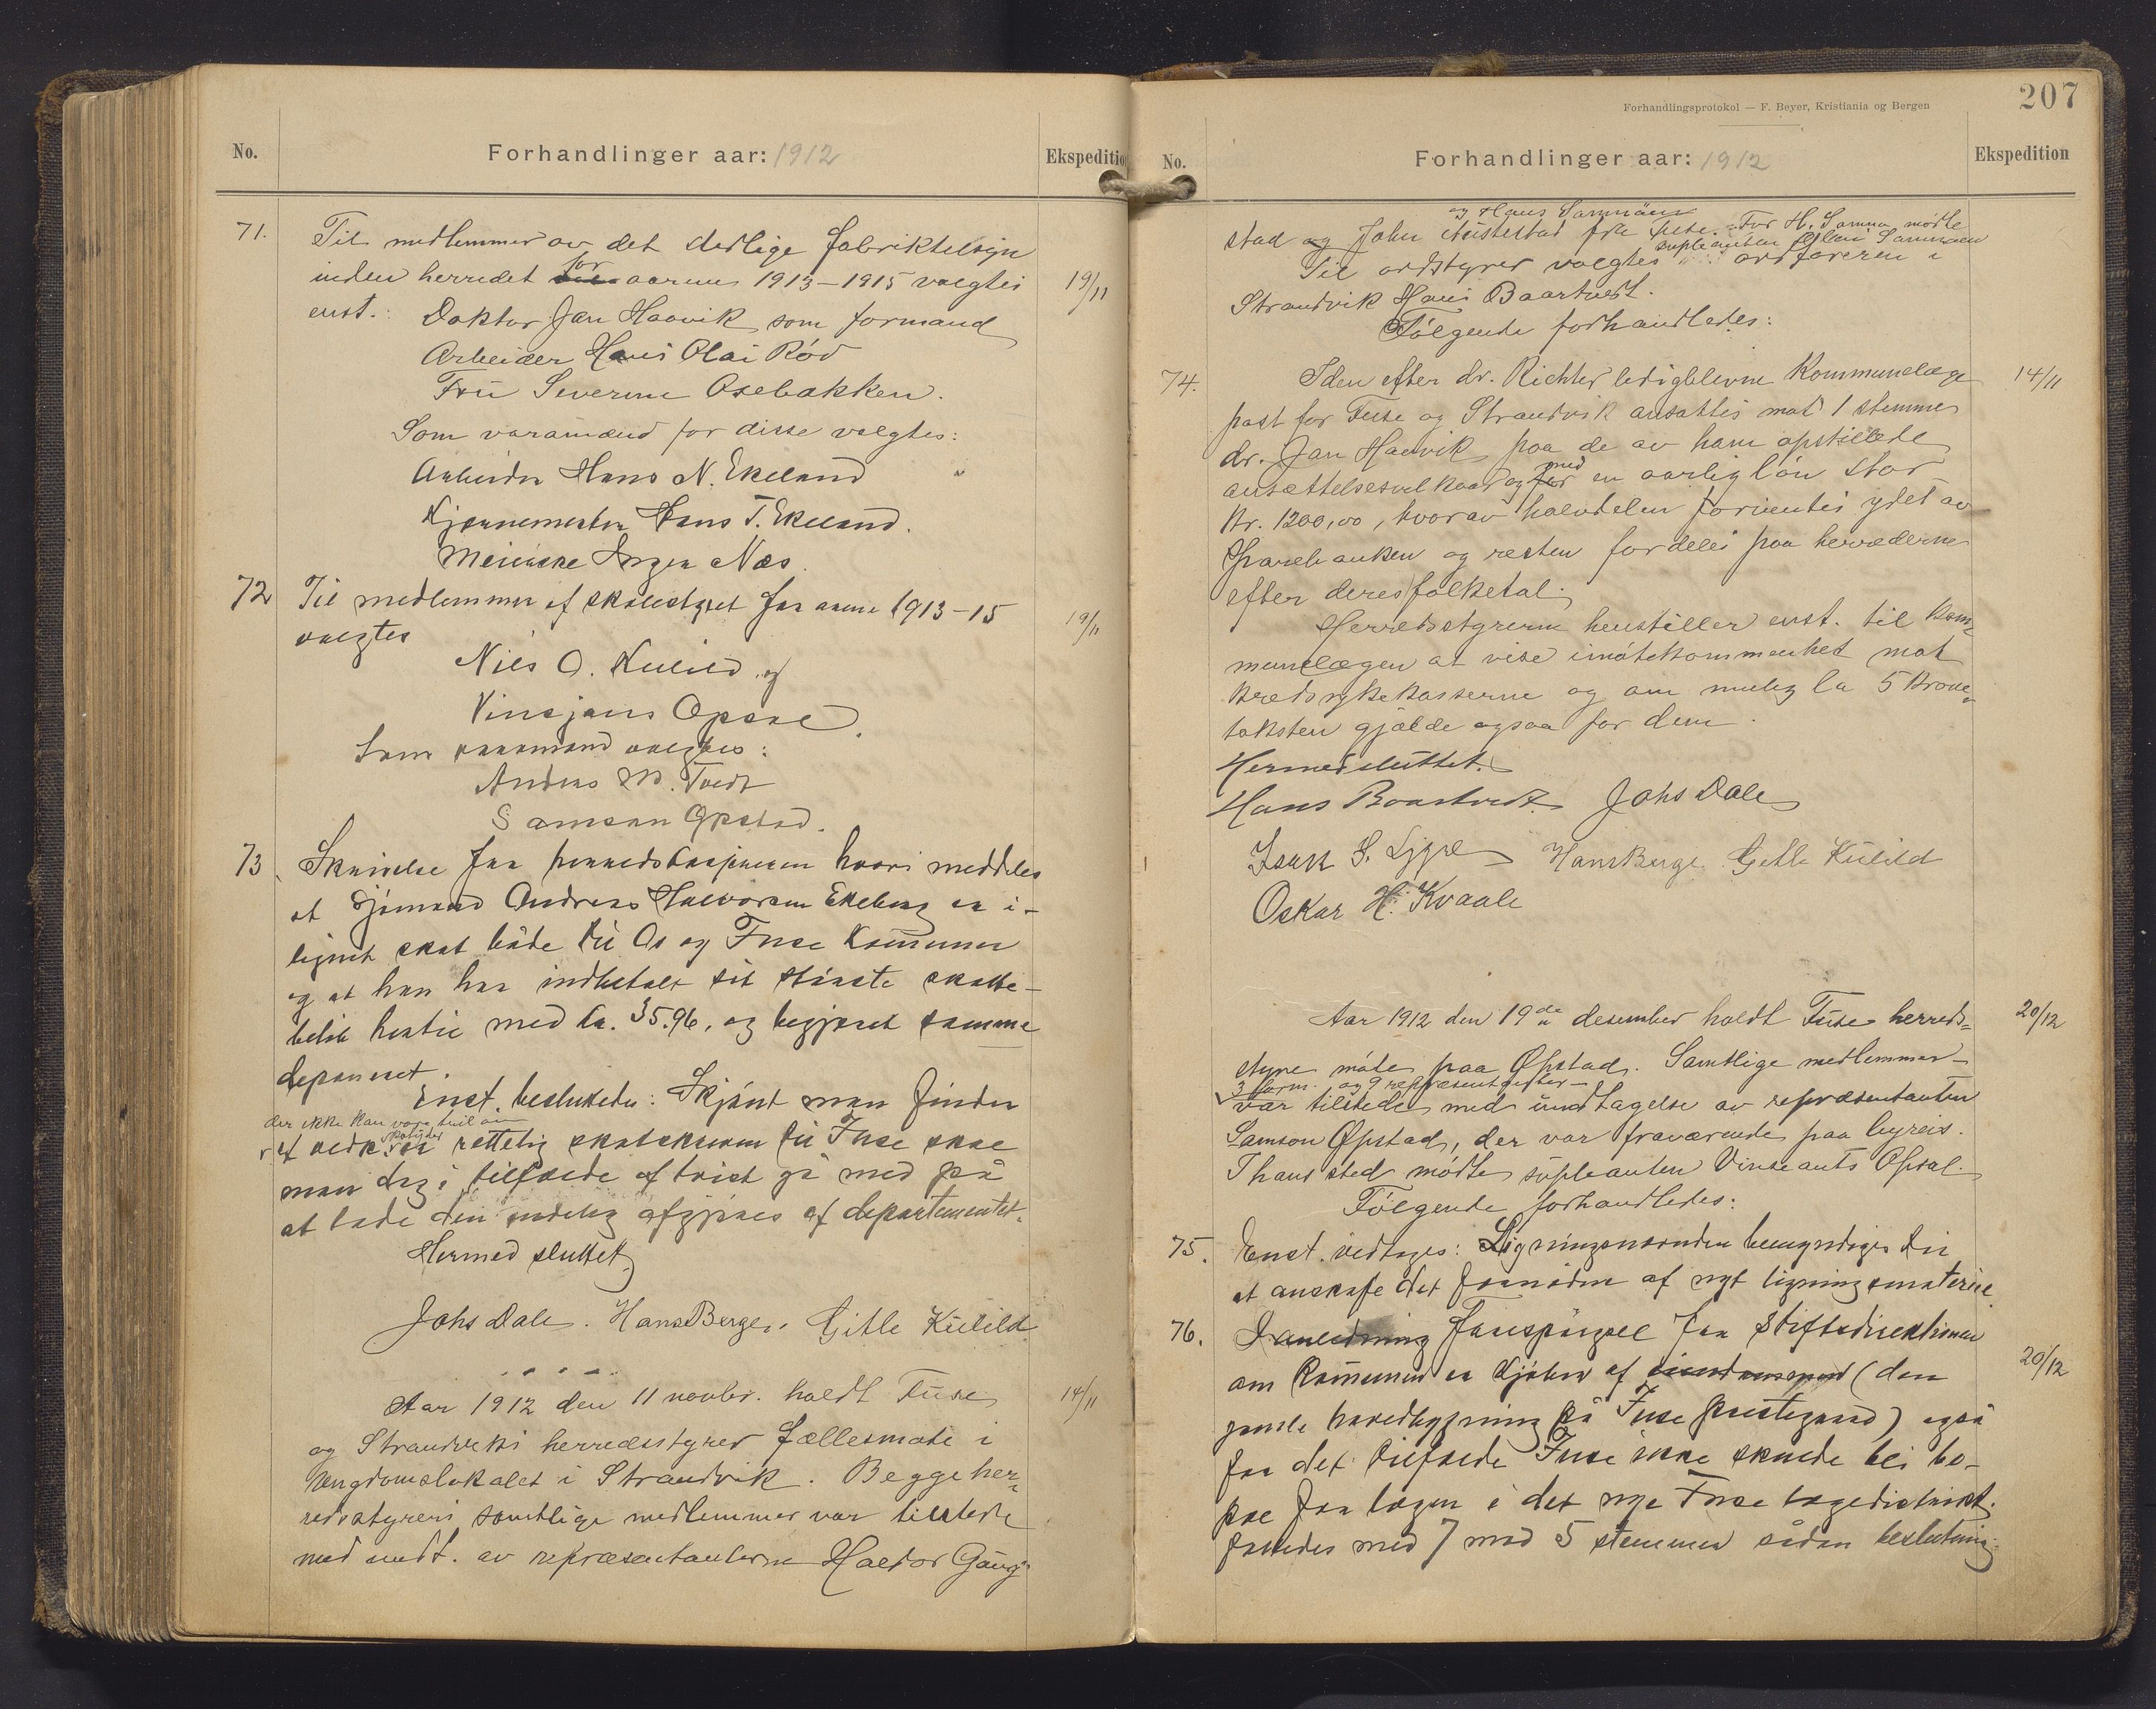 No.
Forhandlinger aar: 1912
Ekspeditio
71.
Til medlemmer av det stedlige fabriktilsyn
inden herredet for aarene 1913–1915 valgtes
19/11
enst.: Doktor Jan Haavik som formand
Arbeider Hans Olai Röd
Fru Severine Osebakken.
Som varamænd for disse valgtes:
Arbeider Hans N. Ekeland "
Hans T. Ekeland.
Meierske Inger Næs.
72
Til medlemmer af skolestyret for aarene 1913–15
19/11
valgtes
Nils O. Kulild og
Vinsjans Opsal.
Som varamænd valgtes:
Anders M. Tvedt
Samson Opstad.
73.
Skrivelse fra herredskassereren hvori meddeles
at sjömand Andreas Halvorsen Ekeberg er i-
lignet skat både til Os og Fuse kommuner
og at han har indbetalt sit störste skatte-
belöb hertil med kr. 35.96, og begjæret samme
deponeret.
Enst. besluttedes: Skjönt man finder
der ikke kan være tvil om
at vedk. skatyder er rettelig skatskreven til Fuse skal
man dog i tilfælde af tvist gå med på
at lade den endelig afgjöres af departementet.
Hermed sluttet
Johs Dale. Hans Berge. Gitle Kulild
Aar 1912 den 11 novbr. holdt Fuse
14/11
og Strandviks herredsstyrer fællesmöte i
ungdomslokalet i Strandvik. Begge her-
redsstyrers samtlige medlemmer var tilstede
med undt. av repræsentanterne Haldor Gäng-
Forhandlingsprotokol — F. Beyer, Kristiania og Bergen
207
No.
Forhandlinger aar: 1912
Ekspedition
og Hans Samnöen
stad og John fra Fuse. For H. Samnø mödte
supleanten Samnöen
Til ordstyrer valgtes ordföreren i
Strandvik Hans Baartvedt.
Fölgende forhandledes:
74.
I den efter dr. Richter ledigblevne Kommunelæge
14/11
post for Fuse og Strandvik ansattes mot 1 stemme
dr. Jan Haavik paa de av ham opstillede
ansættelsesvilkaar og med en aarlig lön stor
kr. 1200,00, hvorav halvdelen forventes ydet av
Sparebanken og resten fordeles paa herrederne
efter deres folketal.
Herredsstyrerne henstiller enst. til kom-
munelægen at vise imötekommenhet mot
kredssykekasserne og om mulig la 5 krone-
taksten gjælde ogsaa for dem.
Hermed sluttet.
Hans Baartvedt Johs Dale
Isak S. Hans Berge Gitle Kulild
Oskar H. Kvaale
Aar 1912 den 19de desember holdt Fuse herreds-
20/12
styre möte paa Øpstad. Samtlige medlemmer
3 form. og 9 repræsentanter
var tilstede med undtagelse av repræsentanten
Samson Øpstad, der var fraværende paa byreis.
I hans sted mödte supleanten Vinseants Opsal.
Fölgende forhandledes:
75.
Enst. vedtoges: Ligningsnævnden bemyndiges til
at anskafe det fornödne af nyt ligningsmateriel.
76.
I anledning Forespörgsel fra Stiftsdirektionen
om Kommunen er kjöber af (den
20/12
gamle hovedbygning på Fuse prestegaard) også
for det tilfælde Fuse ikke skulde bli bo-
pæl for lægen i det nye Fuse lægedistrikt.
fattedes med 7 mod 5 stemmer sådan beslutning: